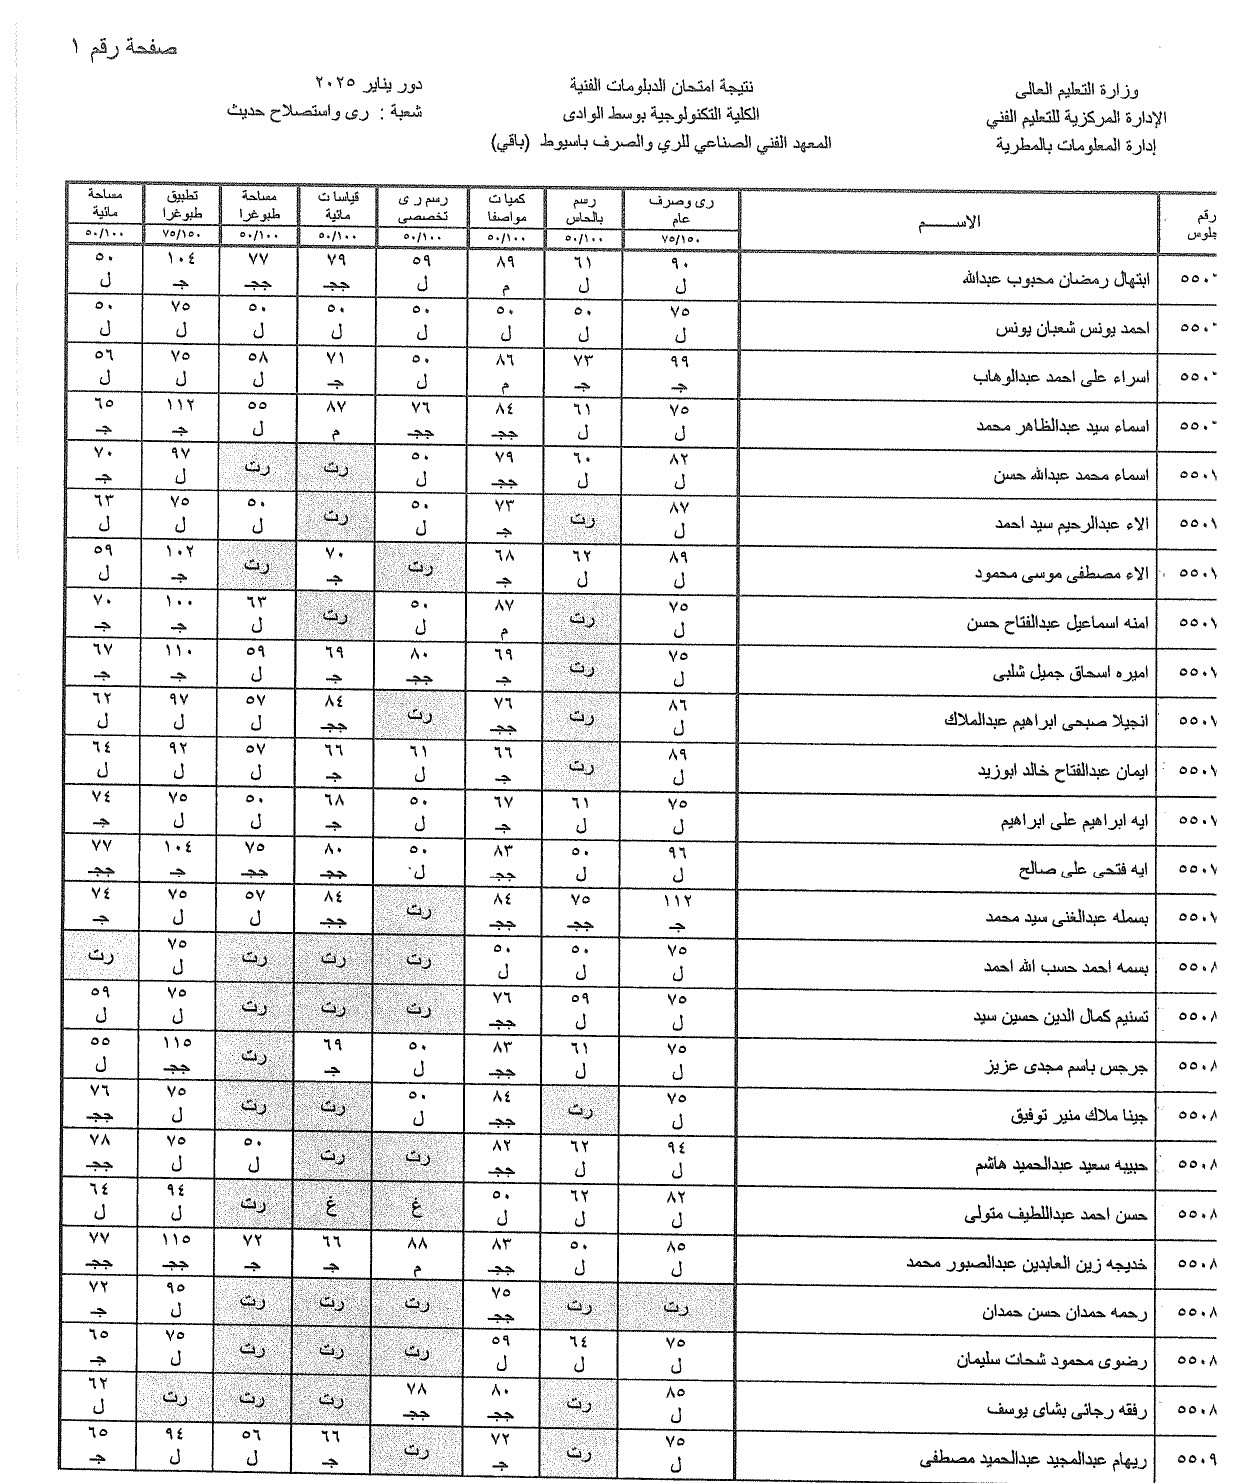 صفحة رقم ١
وزارة التعليم العالى
نتيجة امتحان الدبلومات الفنية
دور يناير ٢٠٢٥
الإدارة المركزية للتعليم الفني
الكلية التكنولوجية بوسط الوادى
شعبة : رى واستصلاح حديث
إدارة المعلومات بالمطرية
المعهد الفني الصناعي للري والصرف باسيوط (باقي)
رقم الاســـــم رى وصرف رسم كميات رسم رى قياسات مساحة تطبيق مساحة
جلوس عام بالحاس مواصفا تخصصى مائية طبوغرا طبوغرا مائية
٧٥/١٥٠ ٥٠/١٠٠ ٥٠/١٠٠ ٥٠/١٠٠ ٥٠/١٠٠ ٥٠/١٠٠ ٧٥/١٥٠ ٥٠/١٠٠
٩٠ ٦١ ٨٩ ٥٩ ٧٩ ٧٧ ١٠٤ ٥٠
٥٥٠ ابتهال رمضان محبوب عبدالله ل ل م ل جج جج ج ل
٧٥ ٥٠ ٥٠ ٥٠ ٥٠ ٥٠ ٧٥ ٥٠
٥٥٠ احمد يونس شعبان يونس ل ل ل ل ل ل ل ل
٩٩ ٧٣ ٨٦ ٥٠ ٧١ ٥٨ ٧٥ ٥٦
٥٥٠ اسراء على احمد عبدالوهاب ج ج م ل ج ل ل ل
٧٥ ٦١ ٨٤ ٧٦ ٨٧ ٥٥ ١١٢ ٦٥
٥٥٠ اسماء سيد عبدالظاهر محمد ل ل جج جج م ل ج ج
٨٢ ٦٠ ٧٩ ٥٠ رت رت ٩٧ ٧٠
٥٥٠١ اسماء محمد عبدالله حسن ل ل جج ل ل ج
٨٧ رت ٧٣ ٥٠ رت ٥٠ ٧٥ ٦٣
٥٥٠١ الاء عبدالرحيم سيد احمد ل ج ل ل ل ل
٨٩ ٦٢ ٦٨ رت ٧٠ رت ١٠٢ ٥٩
٥٥٠١ الاء مصطفى موسى محمود ل ل ج ج ج ل
٧٥ رت ٨٧ ٥٠ رت ٦٣ ١٠٠ ٧٠
٥٥٠١ امنه اسماعيل عبدالفتاح حسن ل م ل ل ج ج
٧٥ رت ٦٩ ٨٠ ٦٩ ٥٩ ١١٠ ٦٧
٥٥٠١ اميره اسحاق جميل شلبى ل ج جج ج ل ج ج
٨٦ رت ٧٦ رت ٨٤ ٥٧ ٩٧ ٦٢
٥٥٠١ انجيلا صبحى ابراهيم عبدالملاك ل جج جج ل ل ل
٨٩ رت ٦٦ ٦١ ٦٦ ٥٧ ٩٢ ٦٤
٥٥٠١ ايمان عبدالفتاح خالد ابوزيد ل ج ل ج ل ل ل
٧٥ ٦١ ٦٧ ٥٠ ٦٨ ٥٠ ٧٥ ٧٤
٥٥٠٧ ايه ابراهيم على ابراهيم ل ل ج ل ج ل ل ج
٩٦ ٥٠ ٨٣ ٥٠ ٨٠ ٧٥ ١٠٤ ٧٧
٥٥٠٧ ايه فتحى على صالح ل ل جج ل جج جج ج جج
١١٢ ٧٥ ٨٤ رت ٨٤ ٥٧ ٧٥ ٧٤
٥٥٠٧ بسمله عبدالغنى سيد محمد ج جج جج جج ل ل ج
٧٥ ٥٠ ٥٠ رت رت رت ٧٥ رت
٥٥٠٨ بسمه احمد حسب الله احمد ل ل ل ل
٧٥ ٥٩ ٧٦ رت رت رت ٧٥ ٥٩
٥٥٠٨ تسنيم كمال الدين حسين سيد ل ل جج ل ل
٧٥ ٦١ ٨٣ ٥٠ ٦٩ رت ١١٥ ٥٥
٥٥٠٨ جرجس باسم مجدى عزيز ل ل جج ل ج جج ل
٧٥ رت ٨٤ ٥٠ رت رت ٧٥ ٧٦
٥٥٠٨ جينا ملاك منير توفيق ل جج ل ل جج
٩٤ ٦٢ ٨٢ رت رت ٥٠ ٧٥ ٧٨
٥٥٠٨ حبيبه سعيد عبدالحميد هاشم ل ل جج ل ل جج
٨٢ ٦٢ ٥٠ غ غ رت ٩٤ ٦٤
٥٥٠٨ حسن احمد عبداللطيف متولى ل ل ل ل ل
٨٥ ٥٠ ٨٣ ٨٨ ٦٦ ٧٢ ١١٥ ٧٧
٥٥٠٨ خديجه زين العابدين عبدالصبور محمد ل ل جج م ج ج جج جج
رت رت ٧٥ رت رت رت ٩٥ ٧٢
٥٥٠٨ رحمه حمدان حسن حمدان جج ل ج
٧٥ ٦٤ ٥٩ رت رت رت ٧٥ ٦٥
٥٥٠٨ رضوى محمود شحات سليمان ل ل ل ل ج
٨٥ رت ٨٠ ٧٨ رت رت رت ٦٢
٥٥٠٨ رفقه رجائى بشاى يوسف ل جج جج ل
٧٥ رت ٧٢ رت ٦٦ ٥٦ ٩٤ ٦٥
٥٥٠٩ ريهام عبدالمجيد عبدالحميد مصطفى ل ج ج ل ل ج